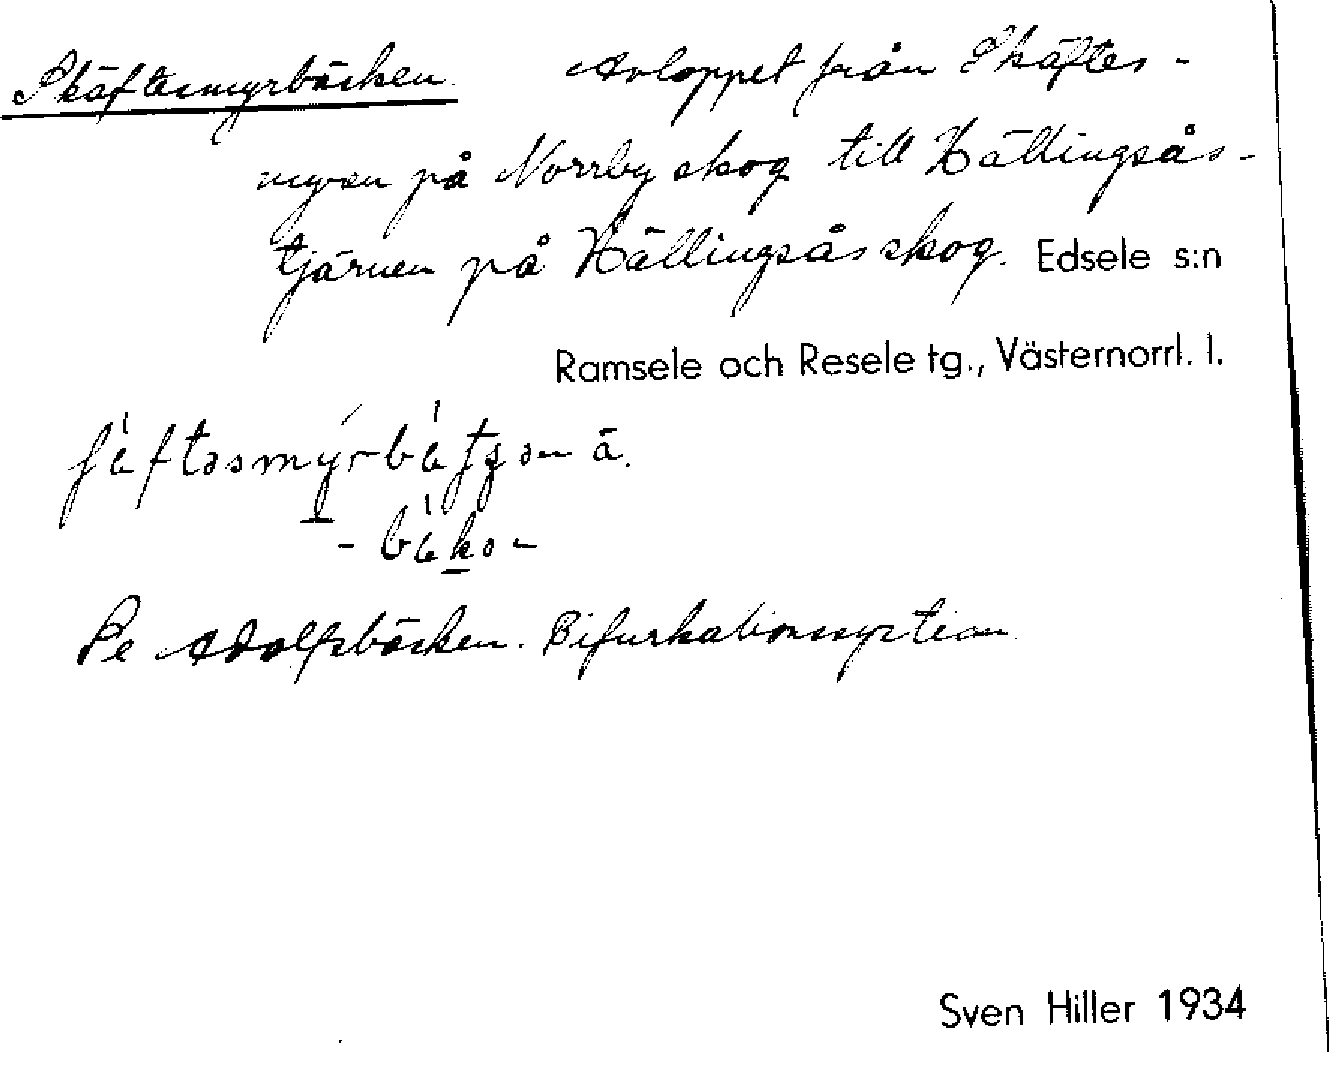 Skäftesmyrbäcken Avloppet från Skäftes-
myren på Norrby skog till Källingsås-
tjärnen på Källingsås skog. Edsele s:n
Ramsele och Resele tg., Västernorrl. l.
-bäkə-
Se Adolfsbäcken. Bifurkationssystem
Sven Hiller 1934